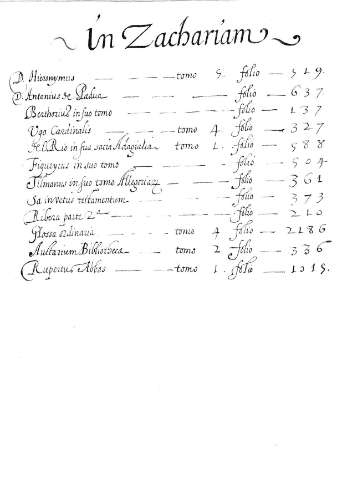 in Zachariam
D. Hieronymus tomo 5. folio 519.
D. Antonius de Padua folio 637
Berthorius in suo tomo folio 137
Ugo Cardinalis tomo 4. folio 327
del Rio in sus sacra Adagialia tomo 1. folio 588
in suo tomo folio 504.
Tilmanus in suo tomo Allegoriaru folio 361
Sa in vetus testamentum folio 373
Ribera parte 2ª folio 210
Glossa ordinaria tomo 4 folio 2186
Auctarium Bibliotheca tomo 2 folio 336
Rupertus Abbas tomo 1. folio 1015.